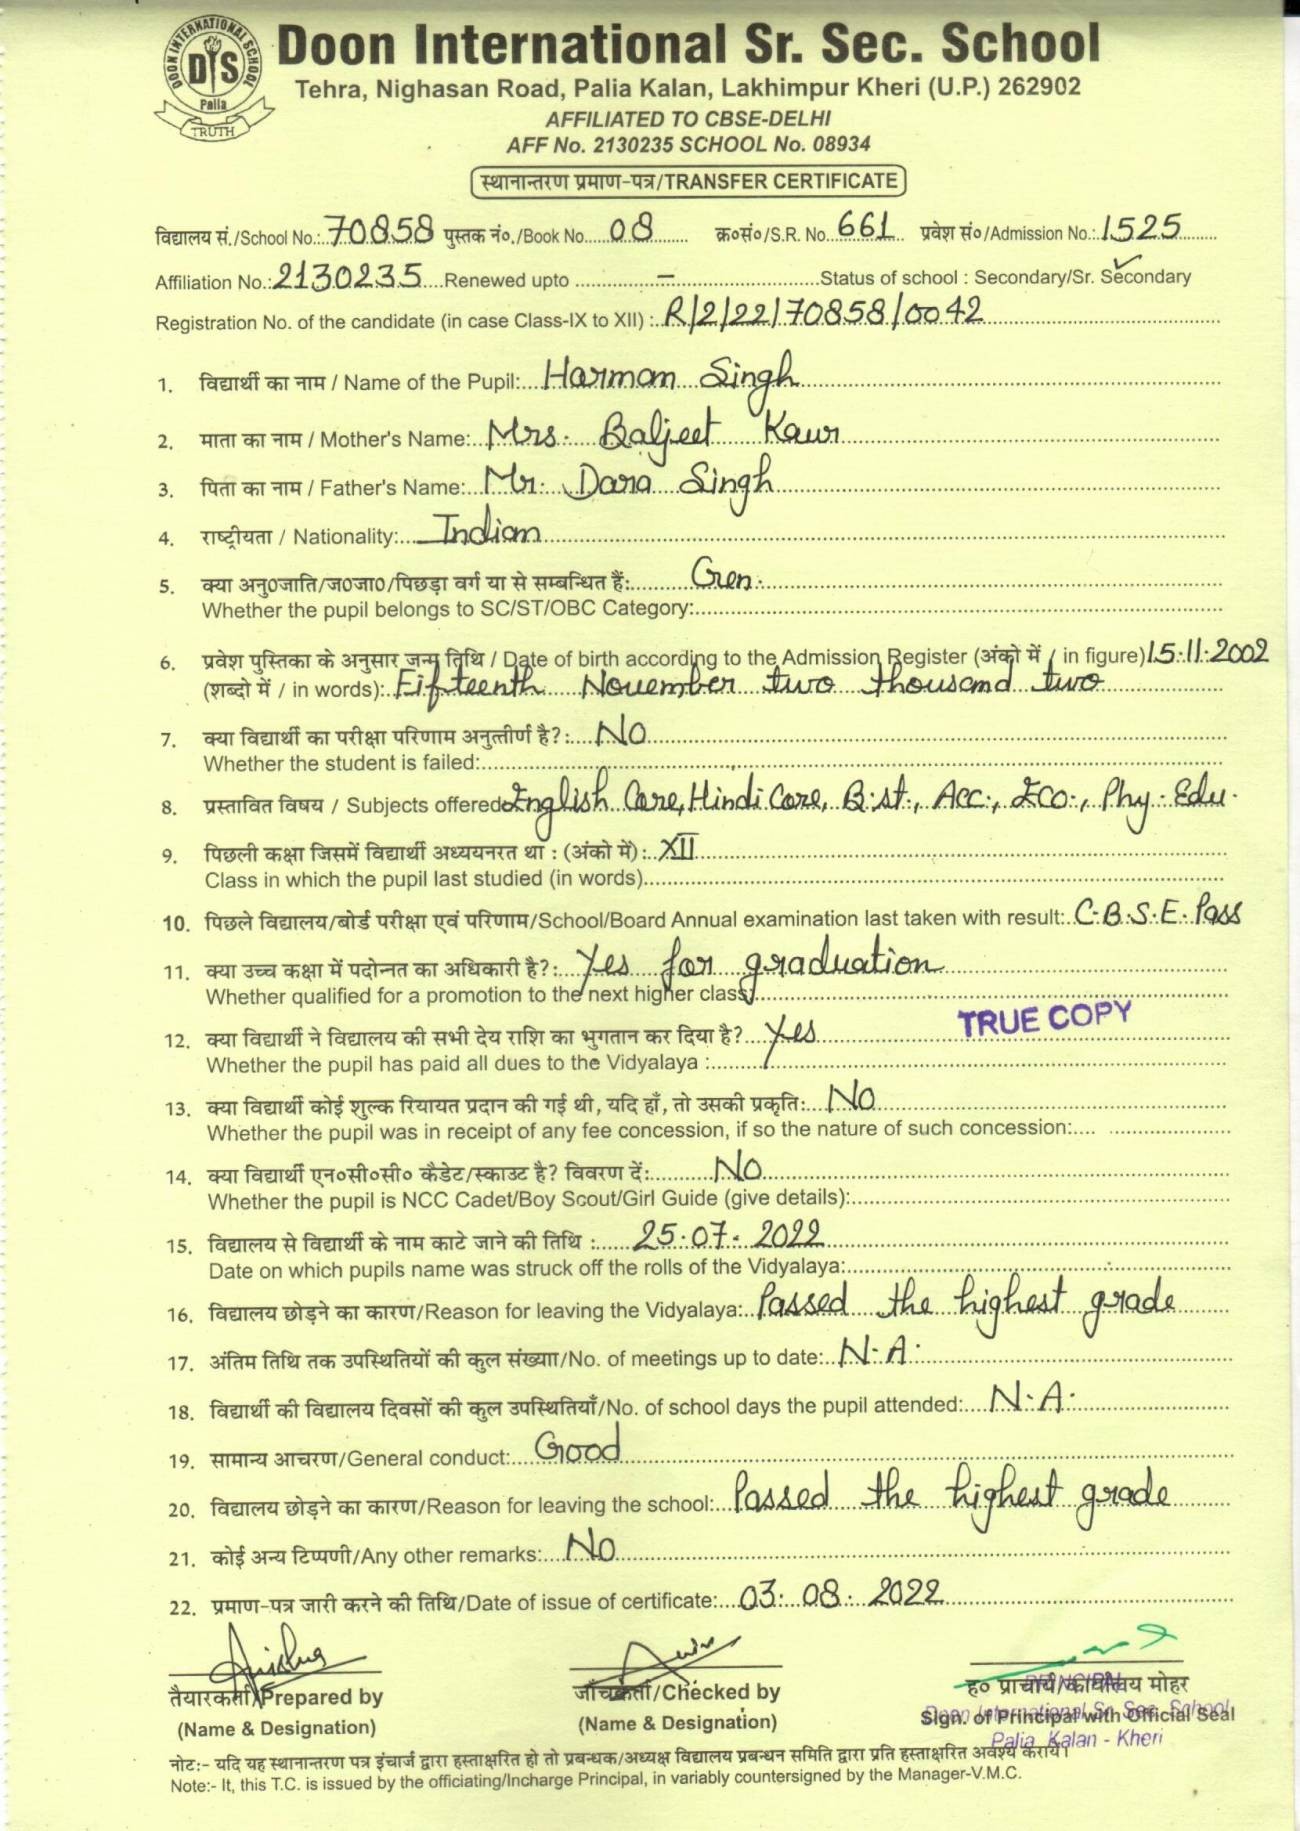 DOON INTERNATIONAL SCHOOL
DIS
Palia
TRUTH
Doon International Sr. Sec. School
Tehra, Nighasan Road, Palia Kalan, Lakhimpur Kheri (U.P.) 262902
AFFILIATED TO CBSE-DELHI
AFF No. 2130235 SCHOOL No. 08934
स्थानान्तरण प्रमाण-पत्र/TRANSFER CERTIFICATE
विद्यालय सं./School No.: 70858 पुस्तक नं०./Book No. 08 क्र०सं०/S.R. No. 661 प्रवेश सं०/Admission No.: 1525
Affiliation No.: 2130235 Renewed upto - Status of school : Secondary/Sr. Secondary
Registration No. of the candidate (in case Class-IX to XII) : R/2/22/70858/0042
1. विद्यार्थी का नाम / Name of the Pupil: Harman Singh
2. माता का नाम / Mother's Name: Mrs. Baljeet Kaur
3. पिता का नाम / Father's Name: Mr. Dara Singh
4. राष्ट्रीयता / Nationality: Indian
5. क्या अनु०जाति/ज०जा०/पिछड़ा वर्ग या से सम्बन्धित हैं: Gen.
Whether the pupil belongs to SC/ST/OBC Category:
6. प्रवेश पुस्तिका के अनुसार जन्म तिथि / Date of birth according to the Admission Register (अंको में / in figure) 15.11.2002
(शब्दो में / in words): Fifteenth November two thousand two
7. क्या विद्यार्थी का परीक्षा परिणाम अनुत्तीर्ण है?: No
Whether the student is failed:
8. प्रस्तावित विषय / Subjects offered English Core, Hindi Core, B.st., Acc., Eco., Phy. Edu.
9. पिछली कक्षा जिसमें विद्यार्थी अध्ययनरत था : (अंको में) : XII
Class in which the pupil last studied (in words)
10. पिछले विद्यालय/बोर्ड परीक्षा एवं परिणाम/School/Board Annual examination last taken with result: C.B.S.E. Pass
11. क्या उच्च कक्षा में पदोन्नत का अधिकारी है?: Yes for graduation
Whether qualified for a promotion to the next higher class:
TRUE COPY
12. क्या विद्यार्थी ने विद्यालय की सभी देय राशि का भुगतान कर दिया है? Yes
Whether the pupil has paid all dues to the Vidyalaya :
13. क्या विद्यार्थी कोई शुल्क रियायत प्रदान की गई थी, यदि हाँ, तो उसकी प्रकृति: No
Whether the pupil was in receipt of any fee concession, if so the nature of such concession:
14. क्या विद्यार्थी एन०सी०सी० कैडेट/स्काउट है? विवरण दें: No
Whether the pupil is NCC Cadet/Boy Scout/Girl Guide (give details):
15. विद्यालय से विद्यार्थी के नाम काटे जाने की तिथि : 25.07.2022
Date on which pupils name was struck off the rolls of the Vidyalaya:
16. विद्यालय छोड़ने का कारण/Reason for leaving the Vidyalaya: Passed the highest grade
17. अंतिम तिथि तक उपस्थितियों की कुल संख्याा/No. of meetings up to date: N.A.
18. विद्यार्थी की विद्यालय दिवसों की कुल उपस्थितियाँ/No. of school days the pupil attended: N.A.
19. सामान्य आचरण/General conduct: Good
20. विद्यालय छोड़ने का कारण/Reason for leaving the school: Passed the highest grade
21. कोई अन्य टिप्पणी/Any other remarks: No
22. प्रमाण-पत्र जारी करने की तिथि/Date of issue of certificate: 03.08.2022
तैयारकर्ता/Prepared by जाँचकर्ता/Checked by ह० प्राचार्य/कार्यालय मोहर
(Name & Designation) (Name & Designation) Sign. of Principal with Official Seal
PRINCIPAL
Doon International Sr. Sec. School
Palia Kalan - Kheri
नोट:- यदि यह स्थानान्तरण पत्र इंचार्ज द्वारा हस्ताक्षरित हो तो प्रबन्धक/अध्यक्ष विद्यालय प्रबन्धन समिति द्वारा प्रति हस्ताक्षरित अवश्य करायें।
Note:- It, this T.C. is issued by the officiating/Incharge Principal, in variably countersigned by the Manager-V.M.C.